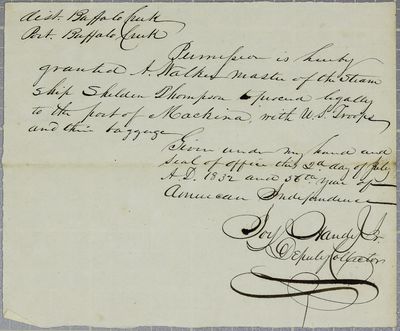 Dist. Buffalo Creek
Port. Buffalo Creek
Permission is hereby
granted A. Walker master of the Steam
Ship Shelden Thompson to proceed legally
to the port of Mackina, with U.S. Troops
and their baggage
Given under my hand and
Seal of office this 2d day of July
A.D. 1832 and 56th year of
American Independence
Joy Handy Jr.
Deputy Collector